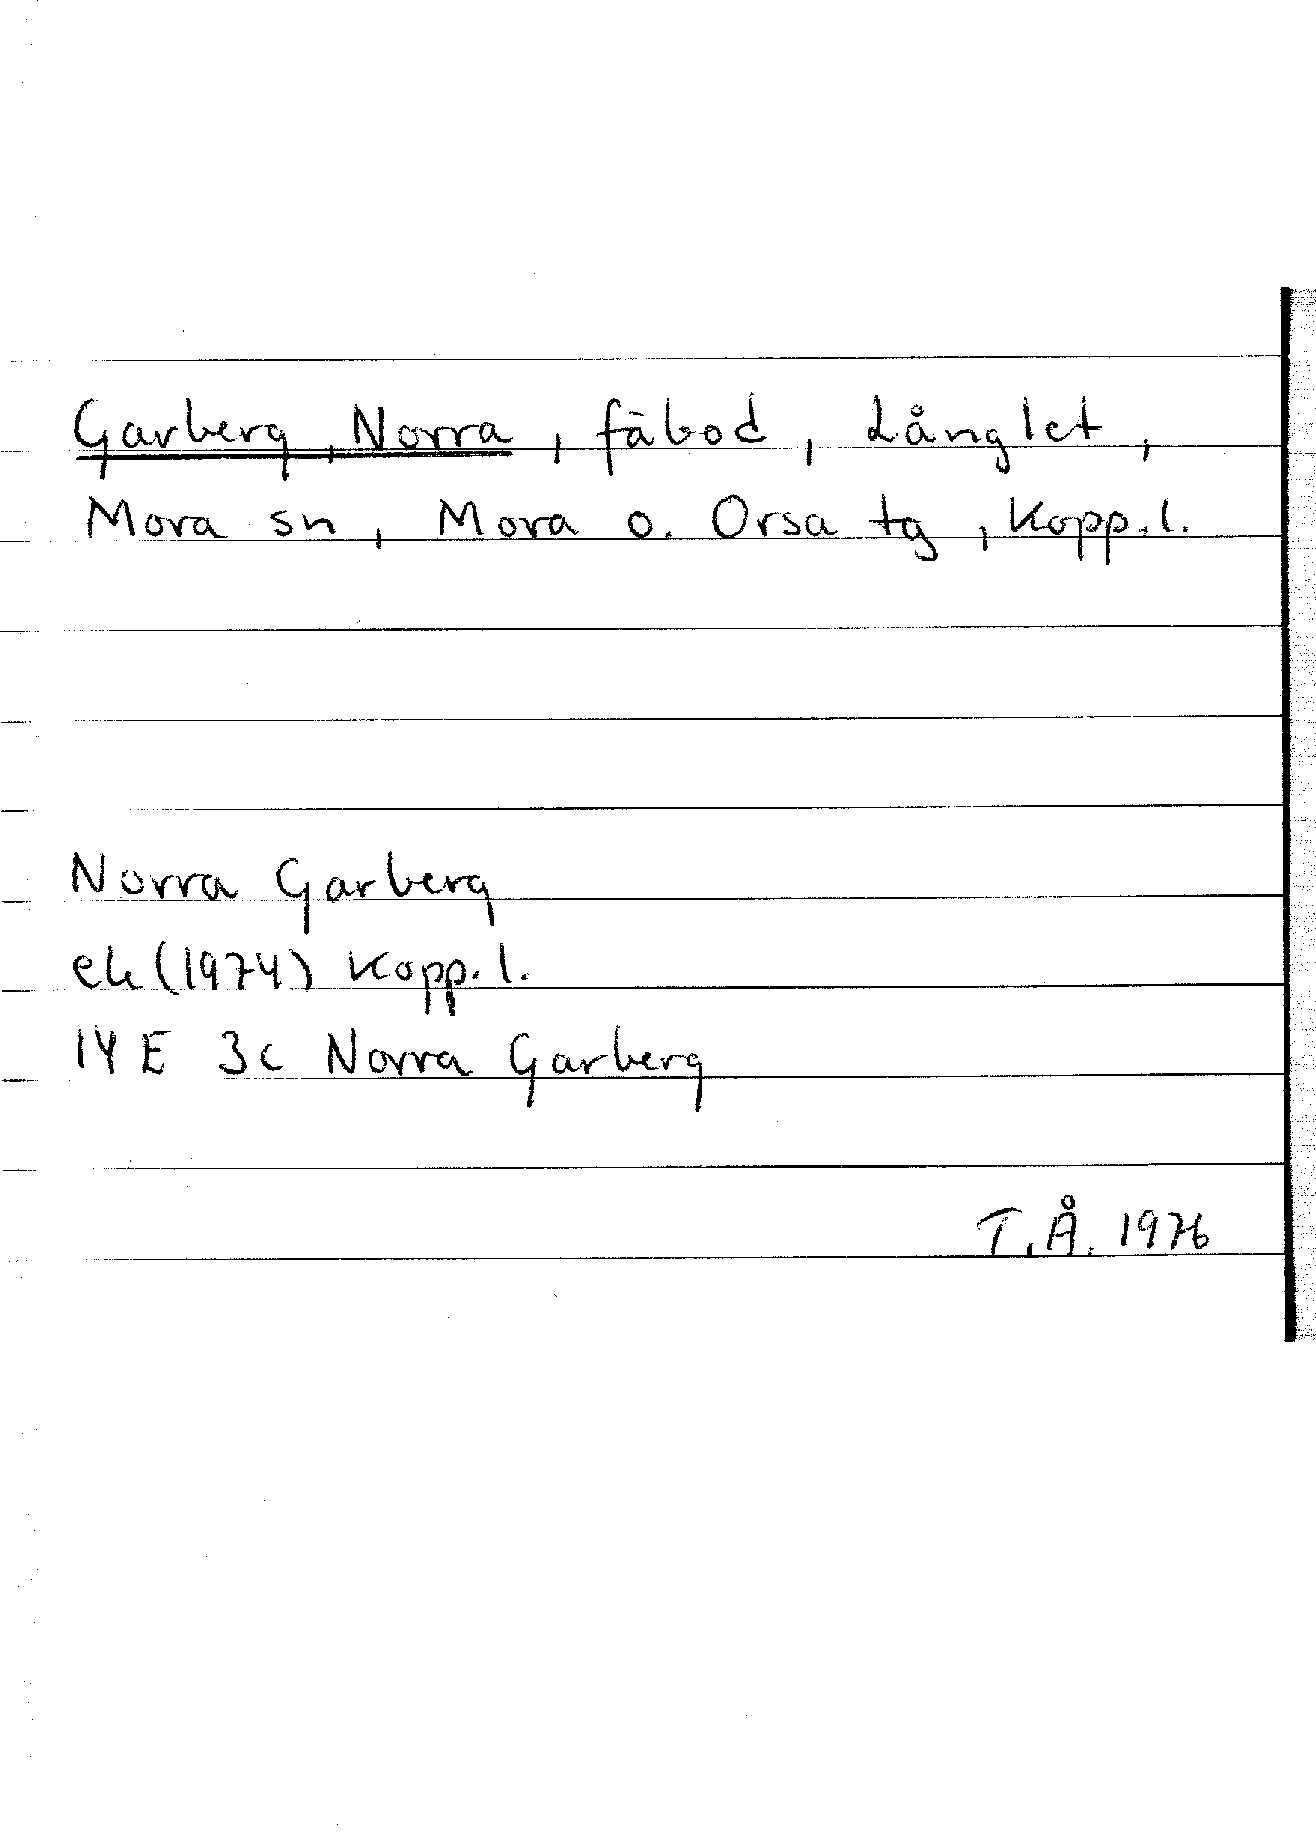 Garberg, Norra, fäbod, Långlet,
Mora sn, Mora o. Orsa tg, Kopp. l.
Norra Garberg
ek (1974) Kopp. l.
14 E 3c Norra Garberg
T.Å. 1976